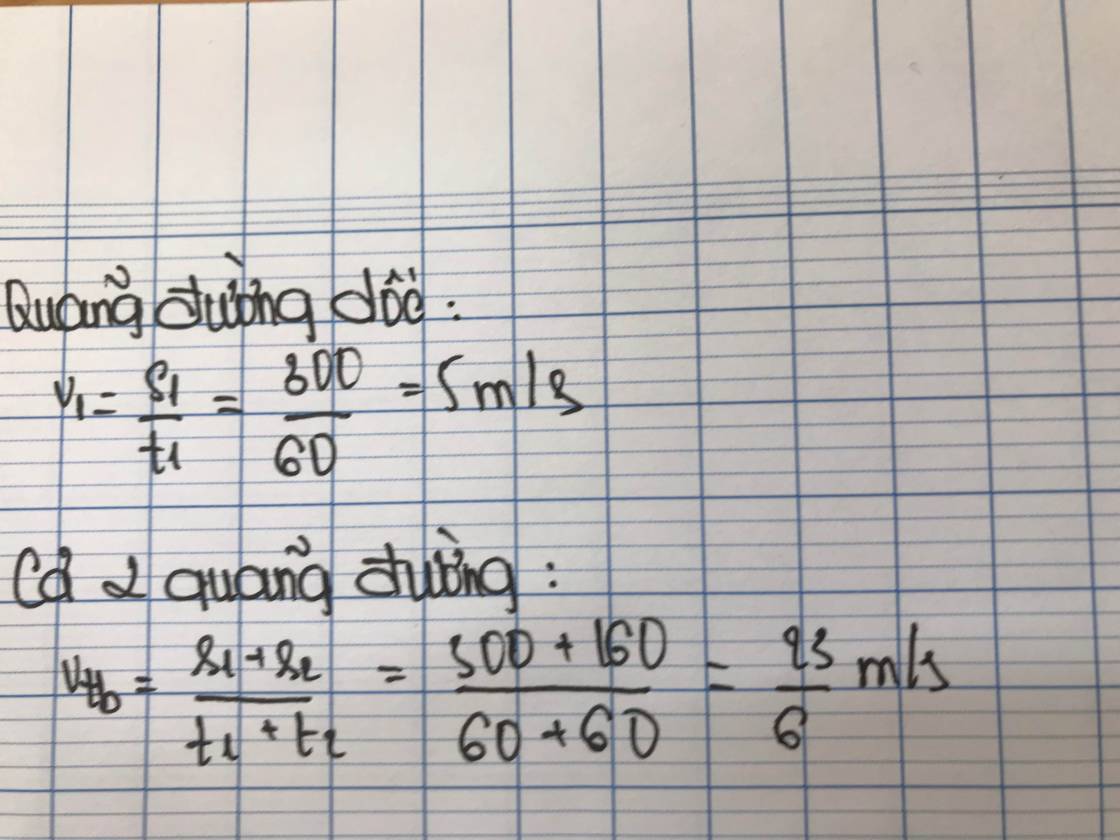 Quãng đường dốc:
v₁ = s₁/t₁ = 300/60 = 5 m/s
Cả 2 quãng đường:
vtb = s₁ + s₂/t₁ + t₂ = 300 + 160/60 + 60 = 23/6 m/s